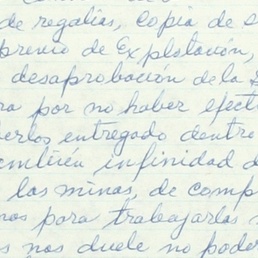 de regalias, copia de s
premio de Explotación,
desaprobacion de la
ra por no haber efect
berlos entregado dentro
también infinidad d
las minas, de comp
nos para trabajarlas
s nos duele no poder